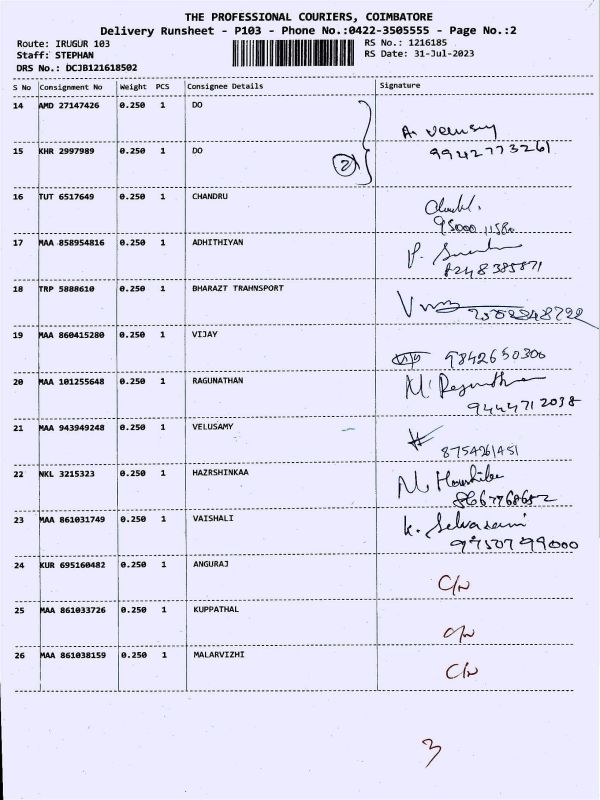 THE PROFESSIONAL COURIERS, COIMBATORE
Delivery Runsheet - P103 - Phone No.:0422-3505555 - Page No.:2
Route: IRUGUR 103 RS No.: 1216185
Staff: STEPHAN RS Date: 31-Jul-2023
DRS No.: DCJB121618502
S No Consignment No Weight PCS Consignee Details Signature
14 AMD 27147426 0.250 1 DO
15 KHR 2997989 0.250 1 DO 2 9942773261
16 TUT 6517649 0.250 1 CHANDRU
95000 11580
17 MAA 858954816 0.250 1 ADHITHIYAN
8248385871
18 TRP 5888610 0.250 1 BHARAZT TRAHNSPORT
19 MAA 860415280 0.250 1 VIJAY
9842650300
20 MAA 101255648 0.250 1 RAGUNATHAN
9444712038
21 MAA 943949248 0.250 1 VELUSAMY
8754261451
22 NKL 3215323 0.250 1 HAZRSHINKAA
8667768652
23 MAA 861031749 0.250 1 VAISHALI K. Selvarani
9750799000
24 KUR 695160482 0.250 1 ANGURAJ
C/N
25 MAA 861033726 0.250 1 KUPPATHAL
C/N
26 MAA 861038159 0.250 1 MALARVIZHI
C/N
3